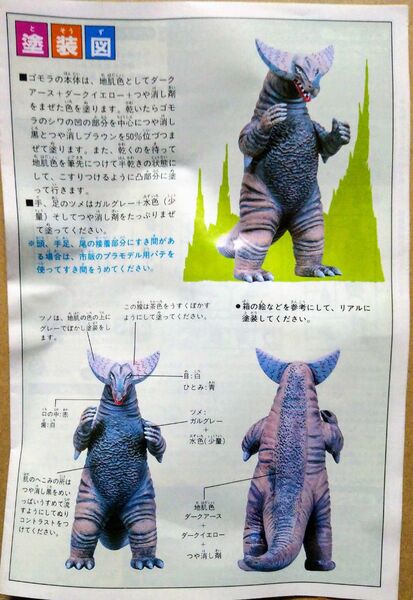 塗装図
■ゴモラの本体は、地肌色としてダーク
アース+ダークイエロー+つや消し剤
をまぜた色を塗ります。乾いたらゴモ
ラのシワの凹の部分を中心につや消し
黒とつや消しブラウンを50%位づつま
ぜて塗ります。また、乾くのを待って
地肌色を筆先につけて半乾きの状態に
して、こすりつけるように凸部分に塗
って行きます。
■手、足のツメはガルグレー+水色(少
量)そしてつや消し剤をたっぷりまぜ
て塗ってください。
※頭、手足、尾の接着部分にすき間があ
る場合は、市販のプラモデル用パテを
使ってすき間をうめてください。
この線は茶色をうすくぼかす
ようにして塗ってください。
ツノは、地肌の色の上に
グレーでぼかし塗装をし
ます。
●箱の絵などを参考にして、リアルに
塗装してください。
目:白
ひとみ:青
口の中:赤
歯:白
ツメ:
ガルグレー
+
水色(少量)
肌のへこみの所は
つや消し黒をめい
っぱいうすめて流
すようにしてぬり
コントラストをつ
けてください。
地肌色
ダークアース
+
ダークイエロー
+
つや消し剤